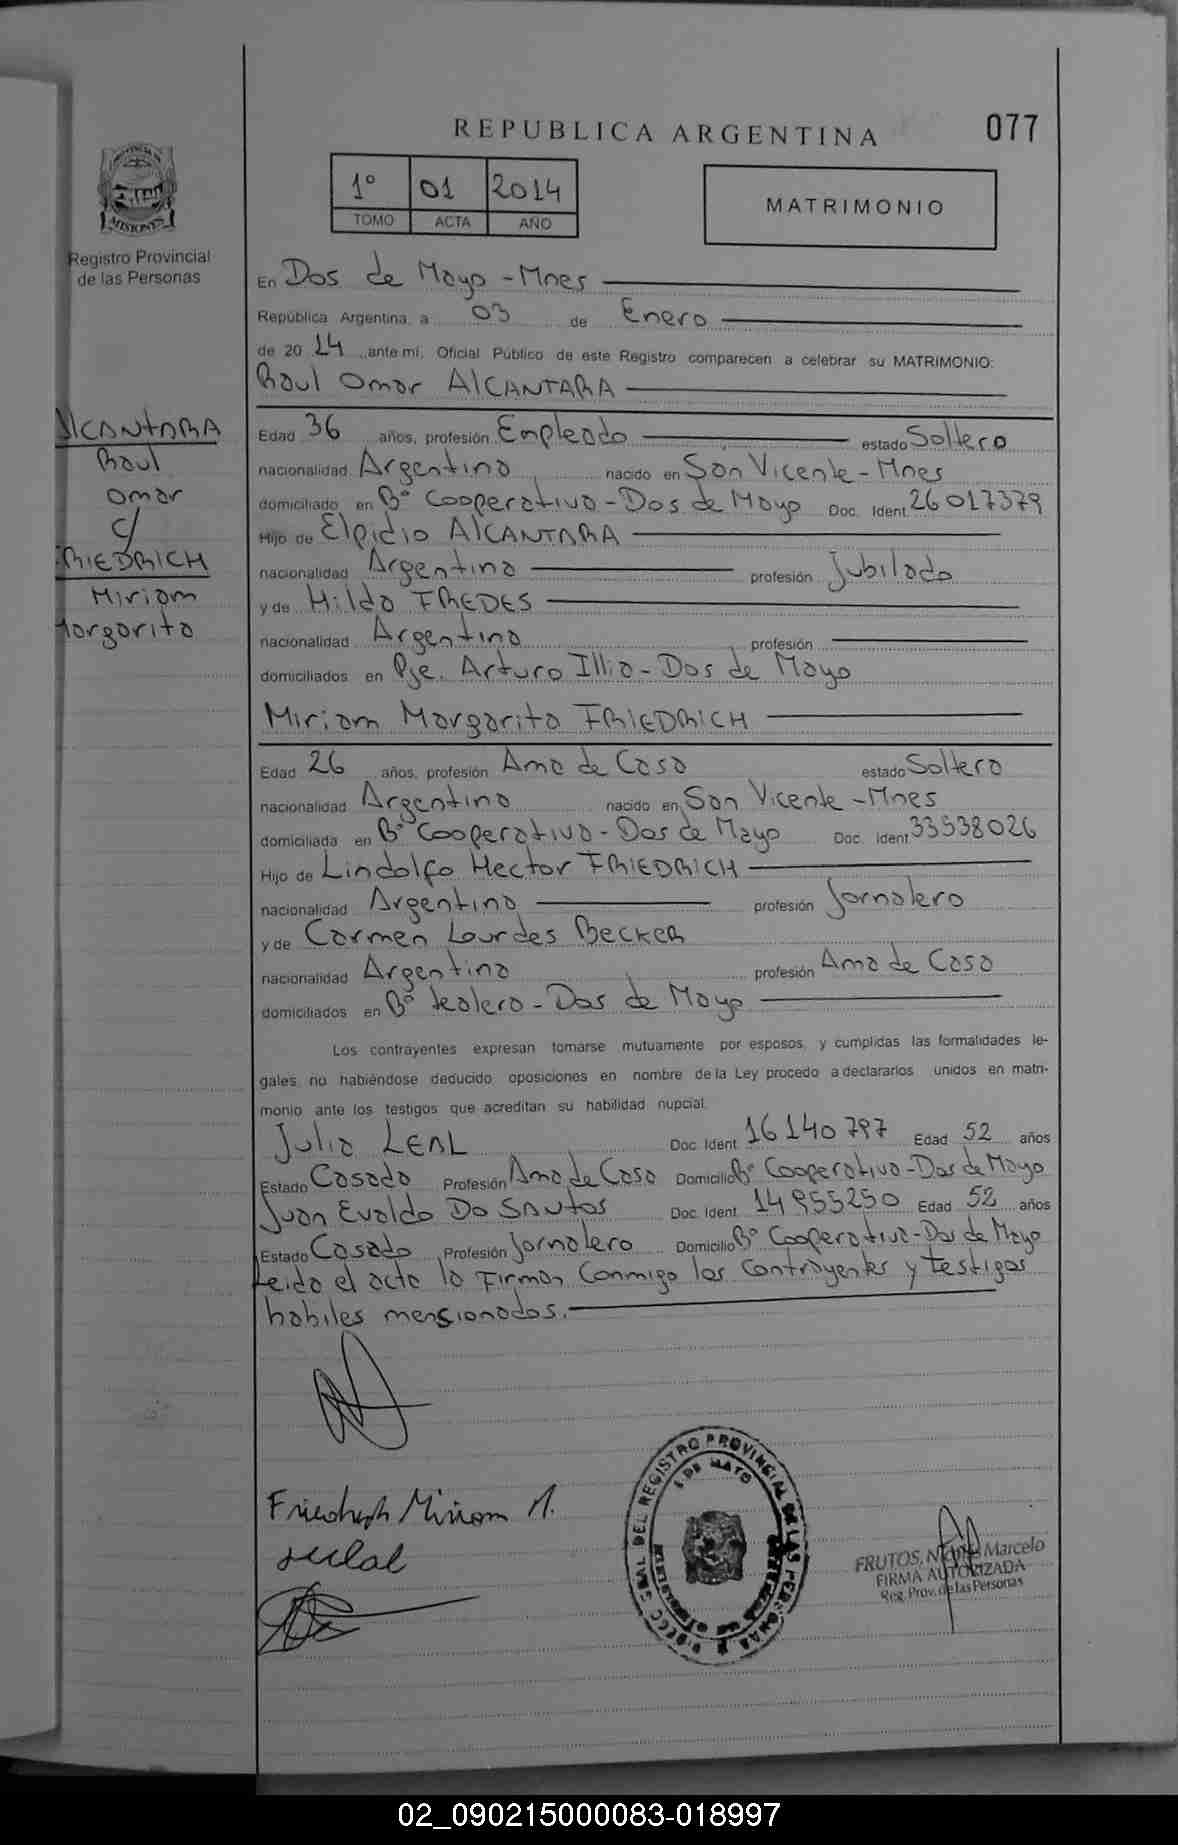 REPUBLICA ARGENTINA
077
1° 01 2014
TOMO ACTA AÑO
MATRIMONIO
PROVINCIA DE
MISIONES
Registro Provincial
de las Personas
En Dos de Mayo - Mnes
República Argentina, a 03 de Enero
de 2014 ante mí, Oficial Público de este Registro comparecen a celebrar su MATRIMONIO:
Raul Omar AlCANTARA
AlCANTARA
Raul
Omar
c/
FRIEDRICH
Miriam
Margarita
Edad 36 años, profesión Empleado estado Soltero
nacionalidad Argentina nacido en San Vicente - Mnes
domiciliado en B° Cooperativa - Dos de Mayo Doc. Ident. 26017379
Hijo de Elpidio AlCANTARA
nacionalidad Argentina profesión Jubilado
y de Hilda FREDES
nacionalidad Argentina profesión
domiciliados en Pje. Arturo Illia - Dos de Mayo
Miriam Margarita FRIEDRICH
Edad 26 años, profesión Ama de Casa estado Soltera
nacionalidad Argentina nacido en San Vicente - Mnes
domiciliada en B° Cooperativa - Dos de Mayo Doc. Ident 33538026
Hijo de Lindolfo Hector FRIEDRICH
nacionalidad Argentina profesión Jornalero
y de Carmen Lourdes BECKER
nacionalidad Argentina profesión Ama de Casa
domiciliados en B° tealero - Dos de Mayo
Los contrayentes expresan tomarse mutuamente por esposos, y cumplidas las formalidades le-
gales, no habiéndose deducido oposiciones en nombre de la Ley procedo a declararlos unidos en matri-
monio ante los testigos que acreditan su habilidad nupcial.
Julia LEAL Doc. Ident 16140797 Edad 52 años
Estado Casada Profesión Ama de Casa Domicilio B° Cooperativa - Dos de Mayo
Juan Evaldo Do SAntos Doc. Ident 14955250 Edad 52 años
Estado Casado Profesión Jornalero Domicilio B° Cooperativa - Dos de Mayo
Leida el acta la Firman Conmigo los Contrayentes y testigos
habiles mensionados.
Friedrich Miriam M.
DIRECC. GRAL DEL REGISTRO PROVINCIAL DE LAS PERSONAS
2 DE MAYO
FRUTOS, Marcelo
FIRMA AUTORIZADA
Reg. Prov. de las Personas
02_090215000083-018997